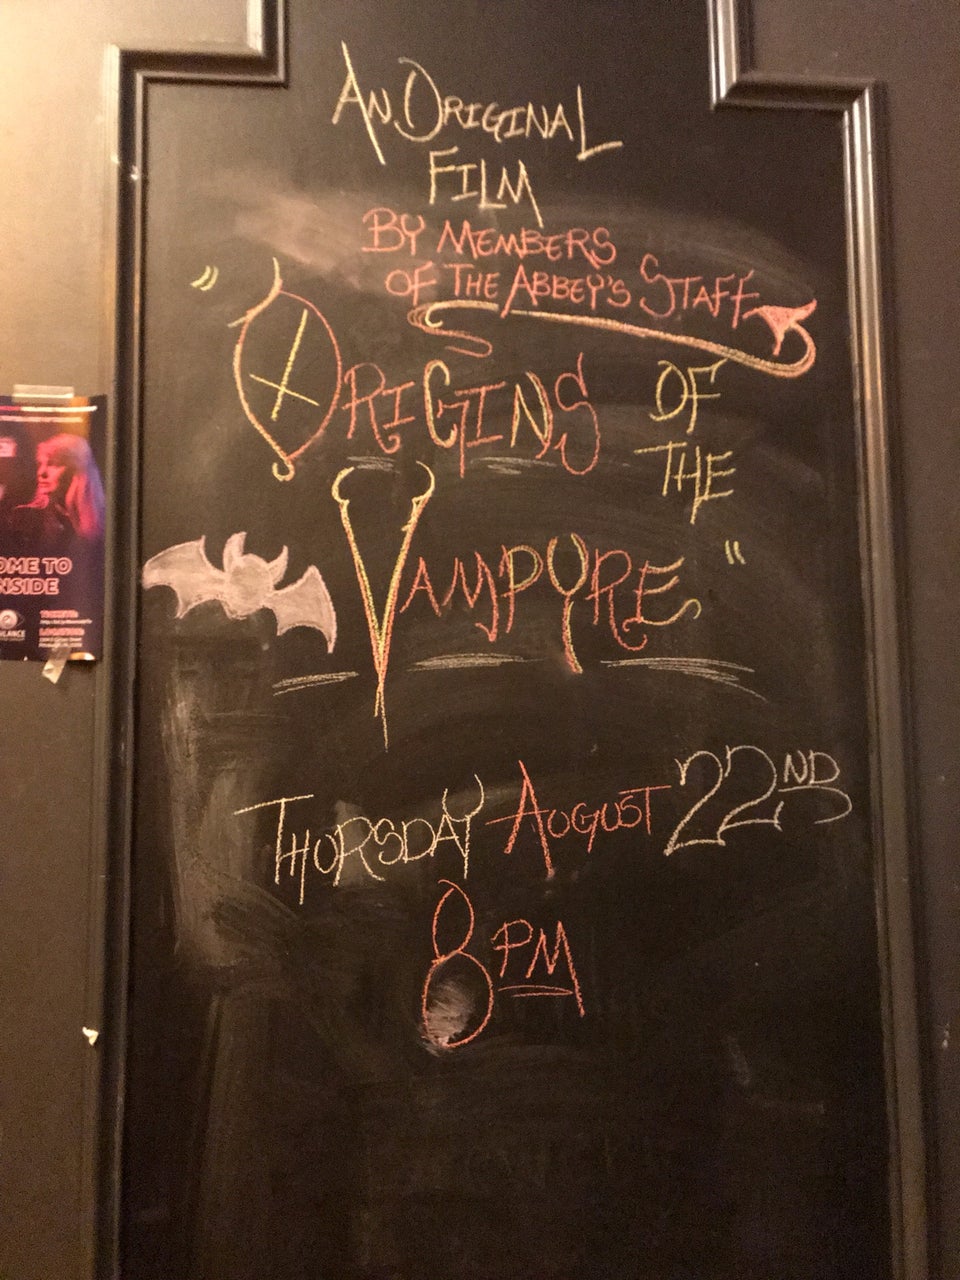 An Original
Film
By Members
of the Abbey's Staff
"Origins of
the
Vampyre"
Thursday August 22nd
8pm
OME TO
NSIDE